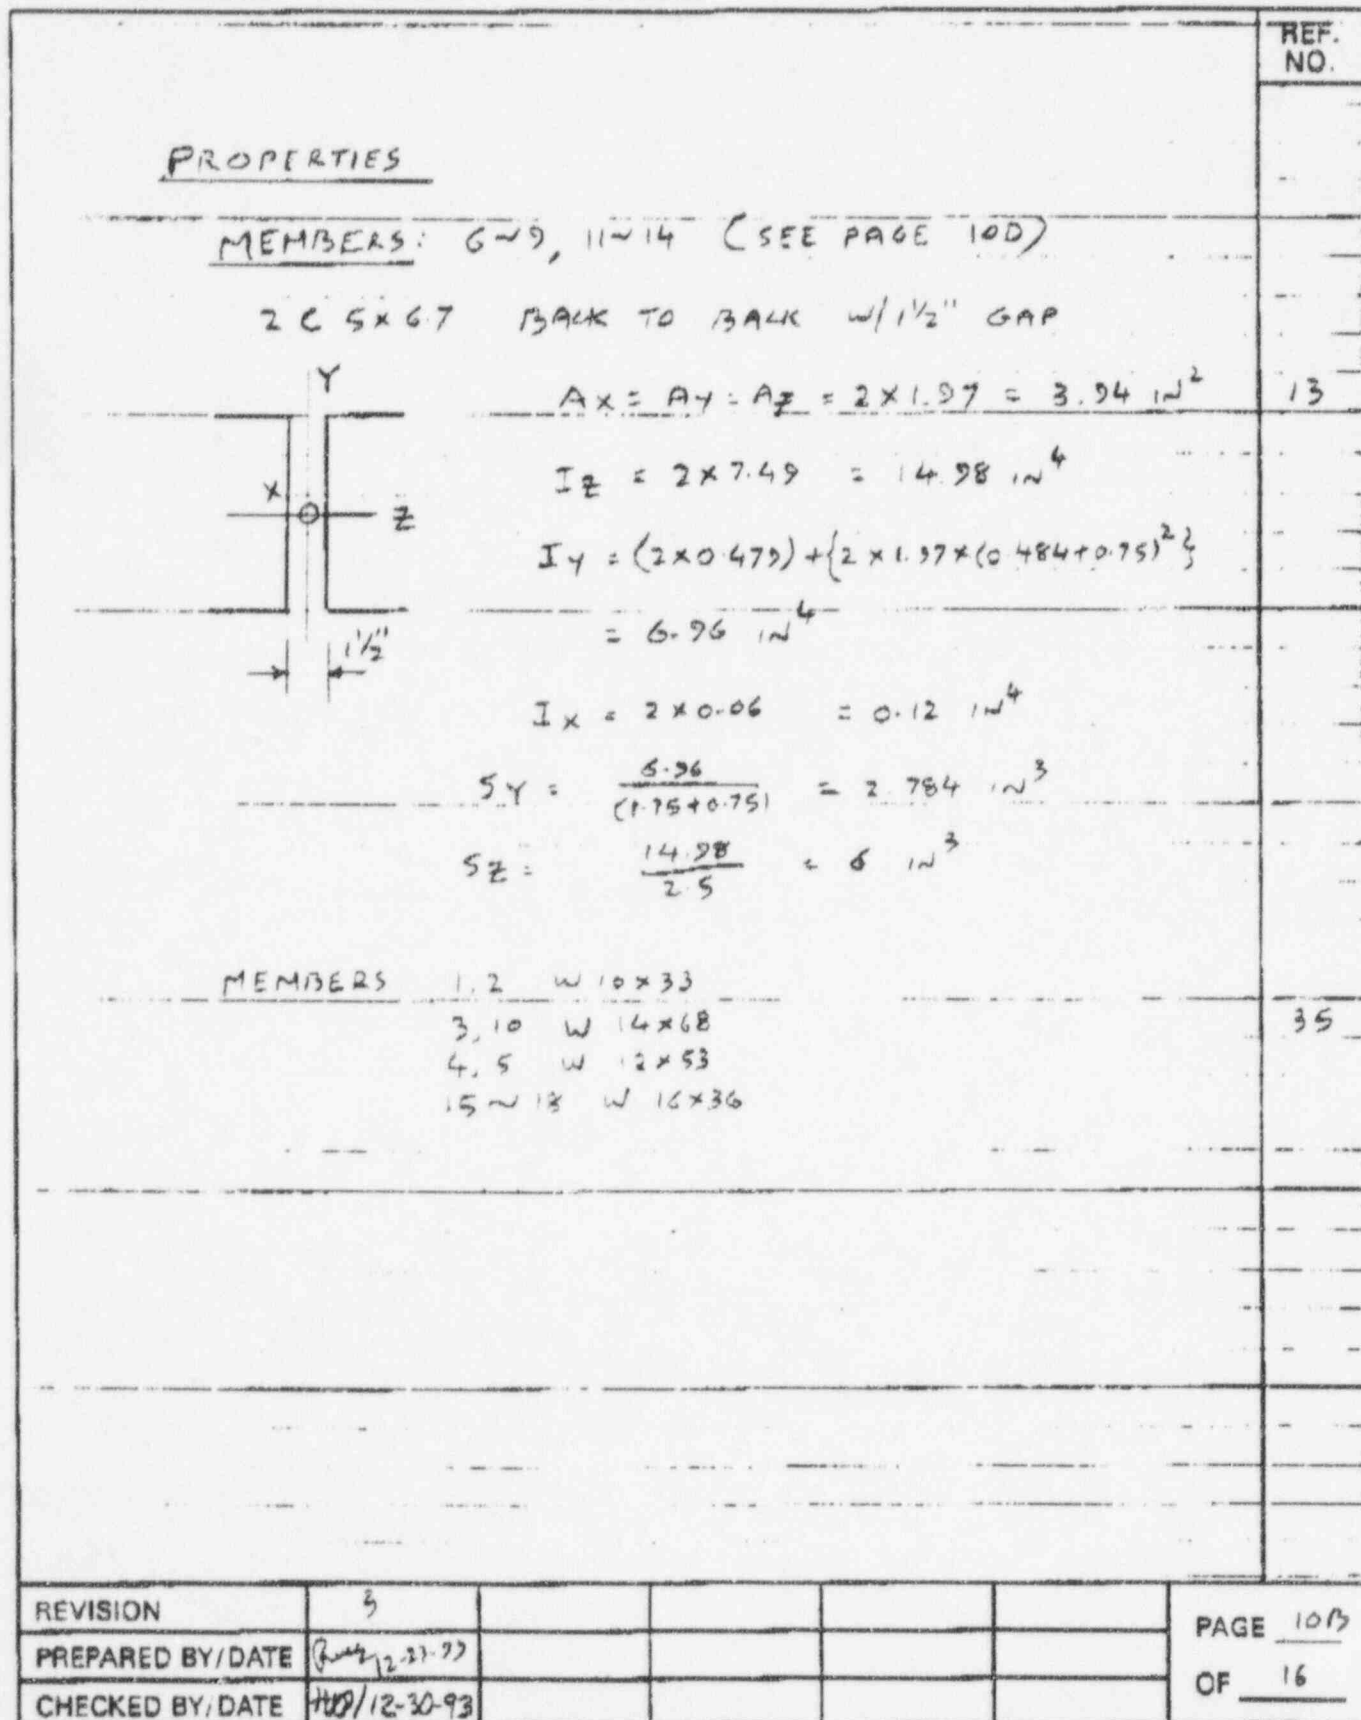 REF.
NO.
PROPERTIES
MEMBERS: 6~9, 11~14 (SEE PAGE 10D)
2 C 5x6.7 BACK TO BACK W/ 1½" GAP
Y
X
Z
1½"
Ax = Ay = Az = 2x1.97 = 3.94 IN² 13
Iz = 2x7.49 = 14.98 IN⁴
Iy = (2x0.479)+{2x1.97x(0.484+0.75)²}
= 6.96 IN⁴
Ix = 2x0.06 = 0.12 IN⁴
SY = 6.96/(1.75+0.75) = 2.784 IN³
SZ = 14.98/2.5 = 6 IN³
MEMBERS 1,2 W 10x33
3,10 W 14x68 35
4,5 W 12x53
15~18 W 16x36
REVISION 3
PREPARED BY/DATE 12-23-93
CHECKED BY/DATE /12-30-93
PAGE 10B
OF 16